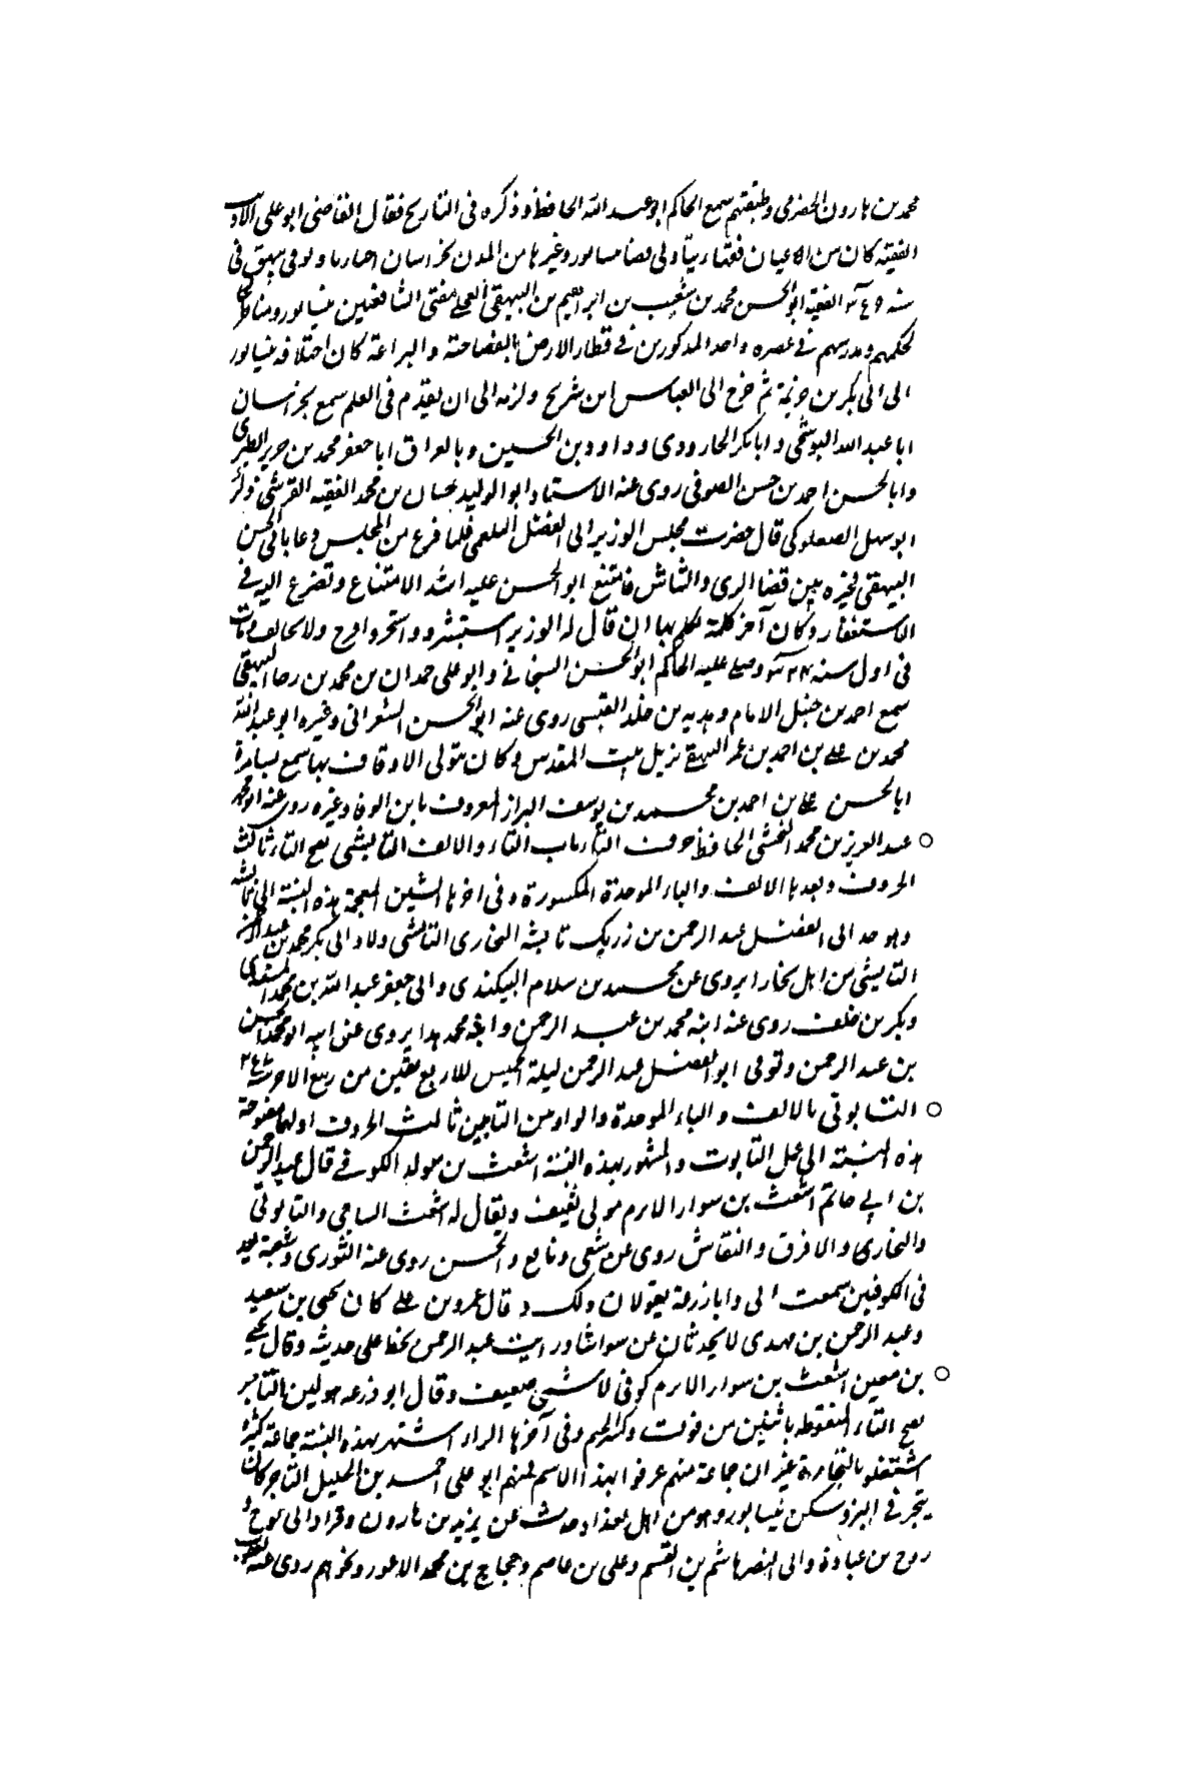 محمد بن هارون الحضرمي وطبقتهم سمع الحاكم ابو عبد الله الحافظ وذكره في التاريخ فقال القاضي ابو علي الاديب
الفقيه كان من الاعيان فقها وولى قضا نيسابور وغيرها من المدن بخراسان وتوفى ببيهق في
سنه الفقيه ابو الحسن محمد بن شعيب بن ابراهيم بن البيهقى العجلى مفتى الشافعيين بنيسابور ومناظر
لحكمهم ومدرسهم في عصره واحد المذكورين في قطار الارض بالفصاحة والبراعة كان اختلافه بنيسابور
الى ابى بكر بن خزيمة ثم خرج الى العباس ابن شريح ولزمه الى ان تقدم في العلم سمع بخراسان
ابا عبد الله البوشنجى وابا بكر الجارودى وداود بن الحسين وبالعراق ابا جعفر محمد بن جرير الطبرى
وابا الحسن احمد بن حسن الصوفى روى عنه الاستاد ابو الوليد حسان بن محمد الفقيه القرشى ذكر
ابو سهل الصعلوكى قال حضرت مجلس الوزير ابى الفضل البلعمى فلما فرغ من المجلس دعا بابى الحسن
البيهقى فخيره بين قضا الرى والشاش فامتنع ابو الحسن عليه اشد الامتناع وتضرع اليه في
الاستعفا وكان آخر كلمة تكلم بها ان قال له الوزير استشر واستخر واقترح ولا تخالف ومات
في اول سنه ٣٢٤ وصلى عليه الحاكم ابو الحسن السنجانى وابو على حمدان بن محمد بن رجا البيهقى
سمع احمد بن حنبل الامام وهدبه بن خلد القيسى روى عنه ابو الحسن الشعرانى وغيره ابو عبد الله
محمد بن على بن احمد بن عمر البيهقى نزيل بيت المقدس وكان يتولى الاوقاف بها سمع بسامرة
ابا الحسن على بن احمد بن محمد بن يوسف البزاز المعروف بابن الوفا وغيره روى عنه ابو محمد
عبد العزيز بن محمد النخشبى الحافظ حرف التا باب التاء والالف التابشى بفتح التاء ثالث
الحروف وبعدها الالف والباء الموحدة المكسورة وفي اخرها الشين المعجمة هذه النسبة الى تابشه
وهو جد ابى الفضل عبد الرحمن بن زريك تابشه البخارى التابشى ولاد ابى بكر محمد بن عبد الرحمن
التابشى من اهل بخارا يروى عن محمد بن سلام البيكندى وابى جعفر عبد الله بن محمد المسندى
وبكر بن خلف روى عنه ابنه محمد بن عبد الرحمن وابنه محمد هدا يروى عن ابيه ابو محمد الحسن
بن عبد الرحمن وتوفى ابو الفضل عبد الرحمن ليلة الخميس للاربع بقين من ربيع الاخر سنه ٢٤٦
التابوتى بالالف والباء الموحدة والواو من التايين ثالث الحروف اولها مفتوحة
هذه النسبة الى عمل التابوت والمشهور بهذه النسبة اشعث بن سوار الكوفى قال عبد الرحمن
بن ابى حاتم اشعث بن سوار الاثرم مولى ثقيف ويقال له اشعث الساجى والتابوتى
والنجارى والافرق والنقاش روى عن شعبى ونافع والحسن روى عنه الثورى وشعبة يعد
في الكوفيين سمعت ابى وابا زرعة يقولان ذلك وقال عمرو بن على كان يحيى بن سعيد
وعبد الرحمن بن مهدى لا يحدثان عن سوار رايت عبد الرحمن يخط على حديثه وقال يحيى
بن معين اشعث بن سوار الاثرم كوفى لا شىء ضعيف وقال ابو زرعه هو لين التاجر
بفتح التاء المنقوطه باثنتين من فوقت وكسر الجيم وفى آخرها الراء اشتهر بهذه النسبة جماعة كثيرة
اشتغلو بالتجارة غير ان جماعة منهم عرفوا بهذا الاسم منهم ابو على احمد بن الخليل التاجر كان
يتجر في البز وسكن نيسابور وهو من اهل بغداد حدث عن يزيد بن هارون وقراد ابى نوح و
روح بن عبادة وابى النضر هاشم بن القسم وعلى بن عاصم وحجاج بن محمد الاعور ونحوهم روى عنه يعقوب